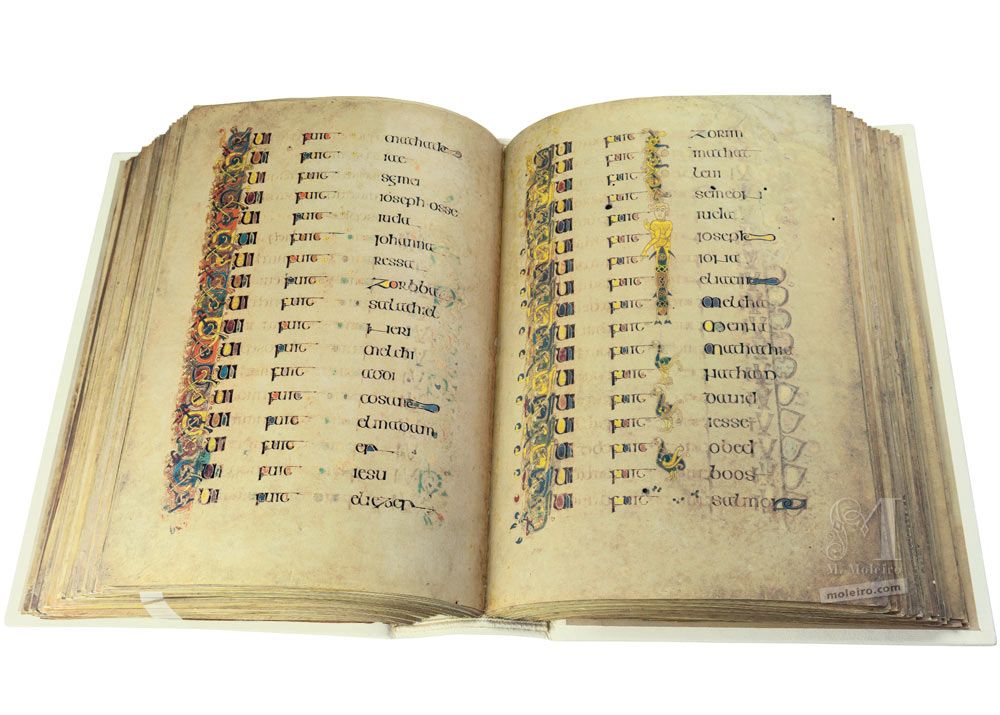 QUI fuit mathathiae
QUI fuit iae
QUI fuit semei
QUI fuit ioseph osse
QUI fuit iuda
QUI fuit iohanna
QUI fuit ressa
QUI fuit zorbba
QUI fuit salathiel
QUI fuit neri
QUI fuit melchi
QUI fuit addi
QUI fuit cosam
QUI fuit elmadam
QUI fuit er
QUI fuit iesu
QUI fuit eliezer
QUI fuit zorim
QUI fuit mathat
QUI fuit leui
QUI fuit semeon
QUI fuit iuda
QUI fuit ioseph
QUI fuit iona
QUI fuit eliacim
QUI fuit melcha
QUI fuit menna
QUI fuit mathathia
QUI fuit nathan
QUI fuit dauid
QUI fuit iesse
QUI fuit obed
QUI fuit boos
QUI fuit salmon
M
M. Moleiro
moleiro.com